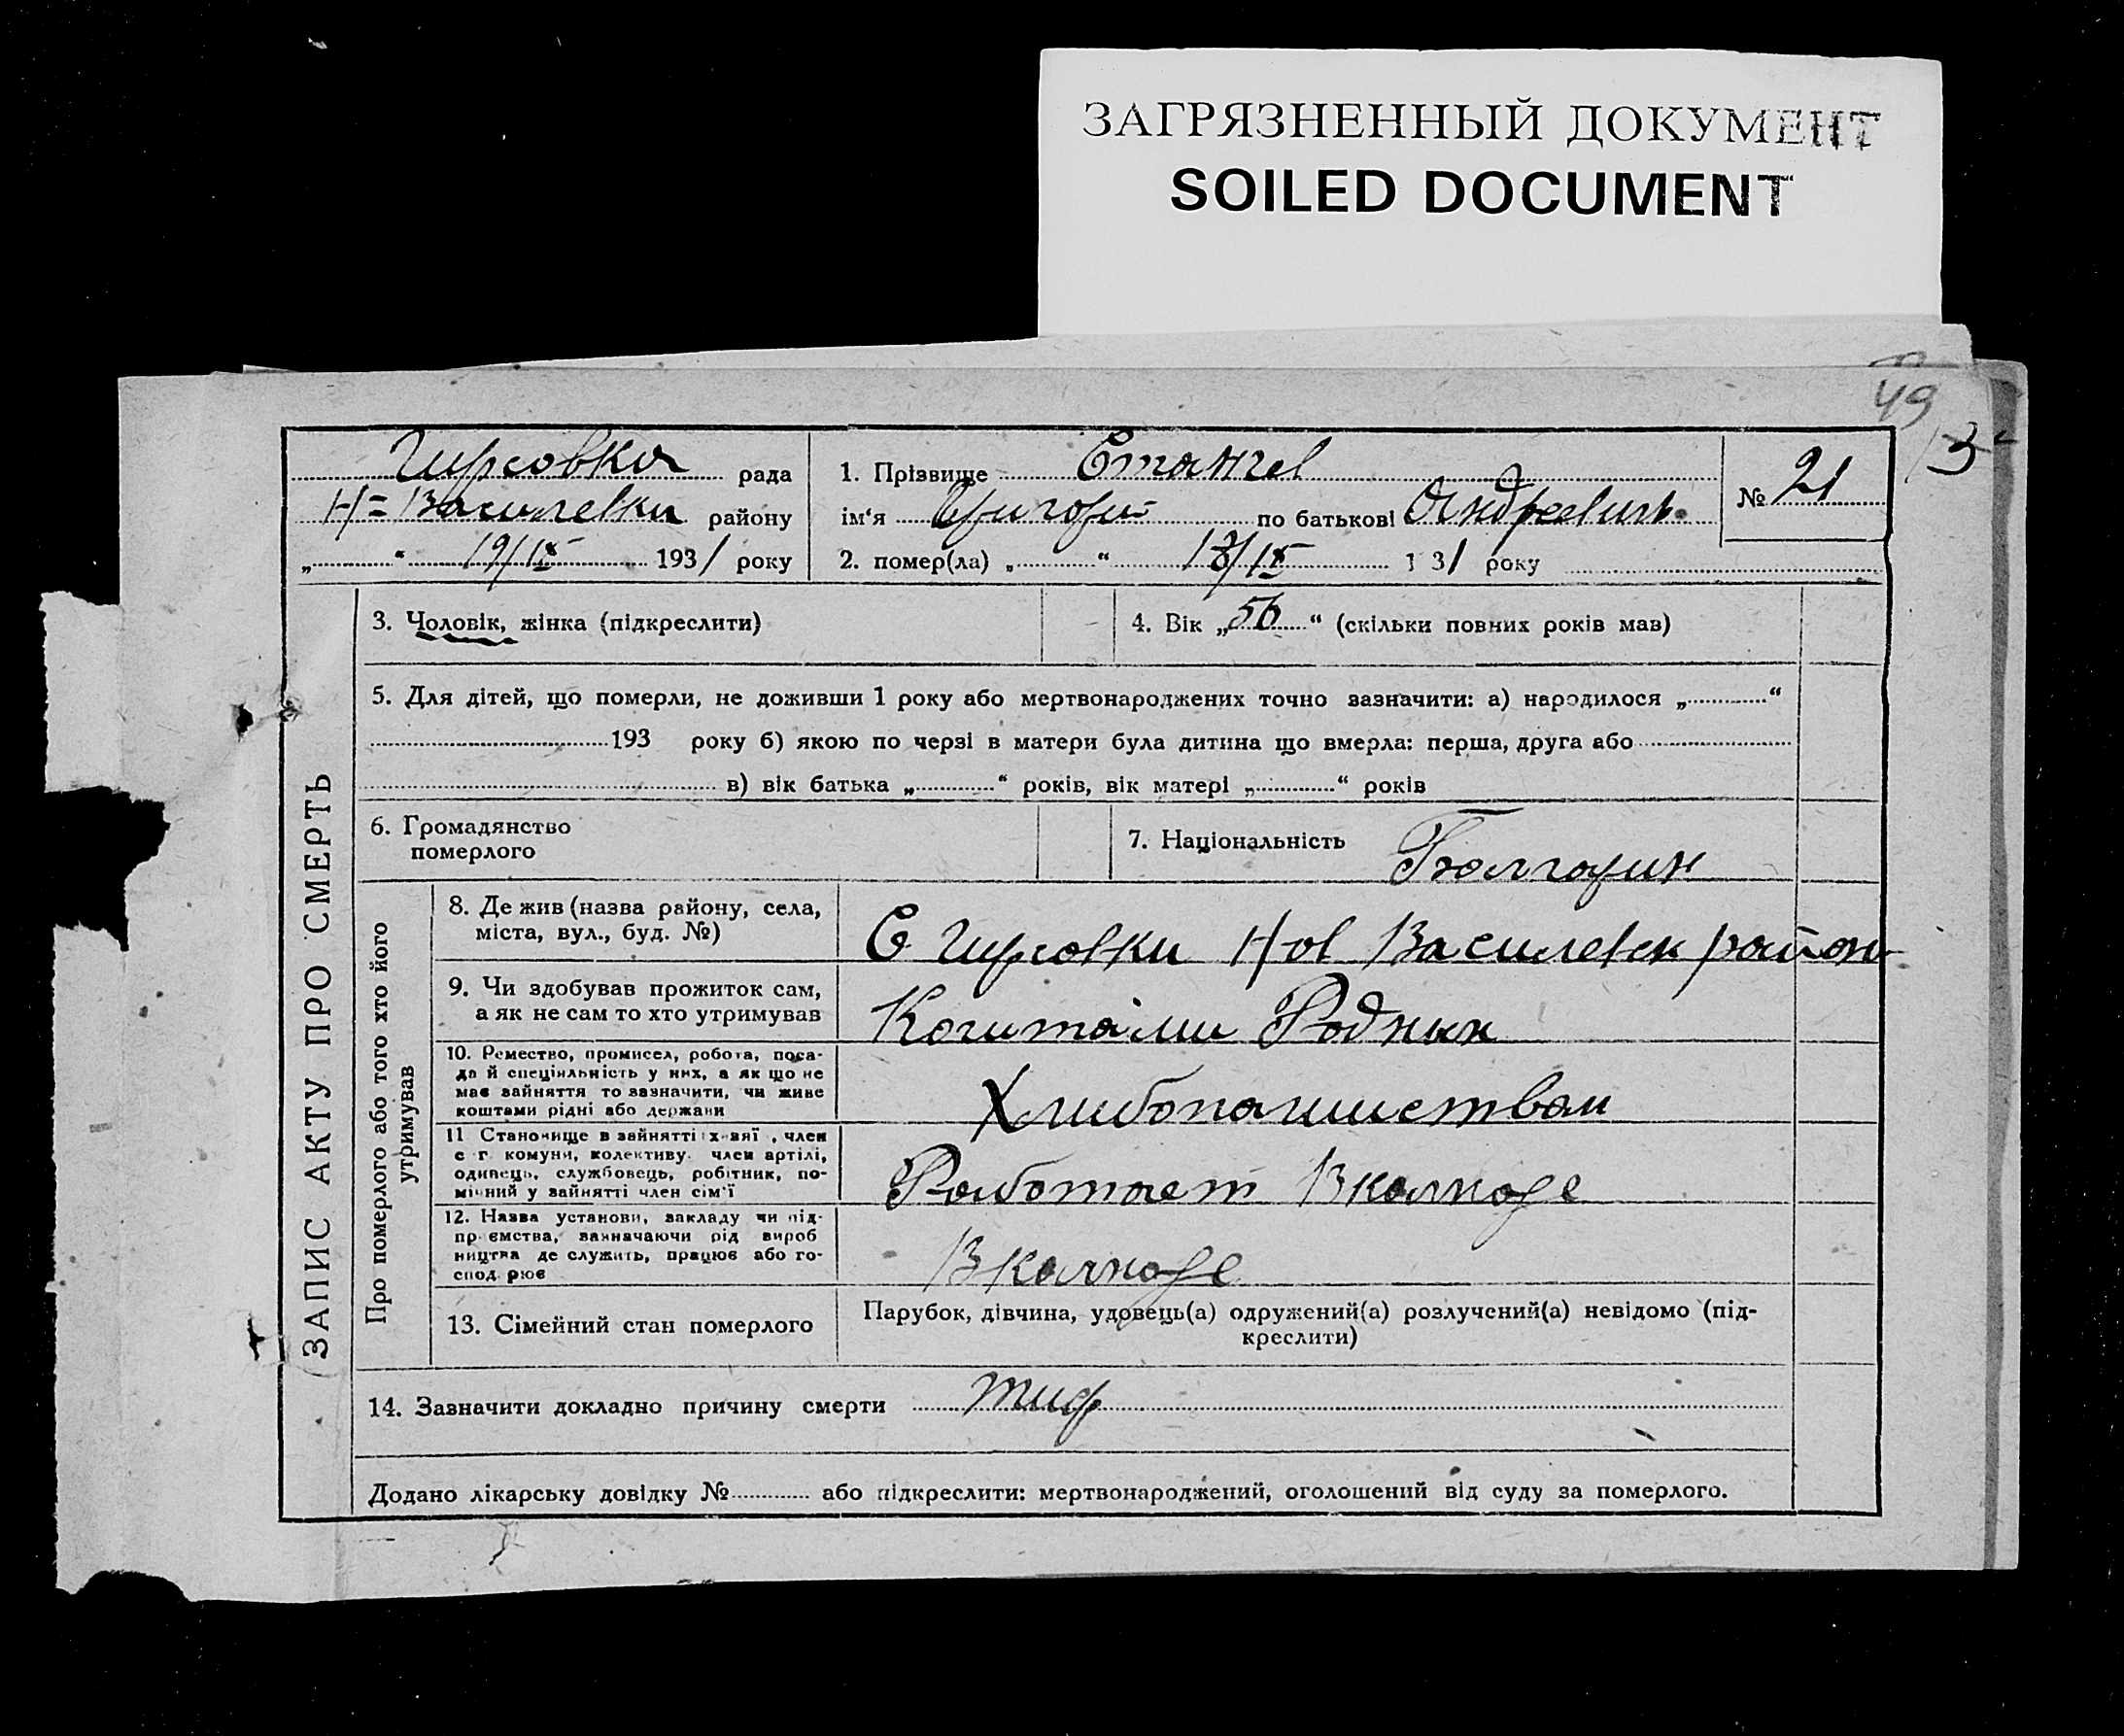 ЗАГРЯЗНЕННЫЙ ДОКУМЕНТ
SOILED DOCUMENT
49
Гирсовка рада
Н=Василевки району
„ “ 19/IX 1931 року
1. Прізвище Станчев
ім‘я Григори по батькові Андреевичь
2. помер(ла) „ “ 18/IX 1 31 року
№ 21
ЗАПИС АКТУ ПРО СМЕРТЬ
3. Чоловік, жінка (підкреслити)
4. Вік „56“ (скільки повних років мав)
5. Для дітей, що померли, не доживши 1 року або мертвонароджених точно зазначити: а) народилося „ “
193 року б) якою по черзі в матери була дитина що вмерла: перша, друга або
в) вік батька „ “ років, вік матері „ “ років
6. Громадянство
померлого
7. Національність Болгарин
Про померлого або того хто його
утримував
8. Де жив (назва району, села,
міста, вул., буд. №)
С Гирсовки Нов Василевск район
9. Чи здобував прожиток сам,
а як не сам то хто утримував
Коштами Родных
10. Ремество, промисел, робота, поса-
да й спеціяльність у них, а як що не
має зайняття то зазначити, чи живе
коштами рідні або держави
Хлибопашиством
11 Становище в зайнятті х зяї , член
с г. комуни, колективу. член артілі,
одинець, службовець, робітник, по-
мічний у зайнятті член сім‘ї
Работает Вколхозе
12. Назва установи, закладу чи під-
пр ємства, зазначаючи рід вироб
ництва де служить, працює або го-
спод рює
Вколхозе
13. Сімейний стан померлого
Парубок, дівчина, удовець(а) одружений(а) розлучений(а) невідомо (під-
креслити)
14. Зазначити докладно причину смерти тиф
Додано лікарську довідку № або підкреслити: мертвонароджений, оголошений від суду за померлого.